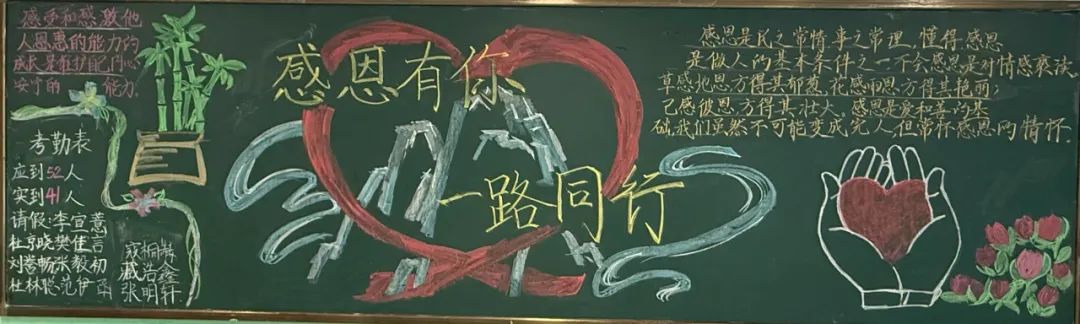 感受和感激他
人恩惠的能力的
成长是维护自己内心
安宁的 能力.
考勤表
应到52人
实到41人
请假:李宣薏
杜京晓樊佳言
刘誉畅张毅初
杜林聪范伊函
寇桐
臧浩鑫
张明轩
感恩有你
一路同行
感恩是人之常情事之常理.懂得感恩
是做人的基本条件之一不会感恩是对情感亵渎.
草感地恩方得其郁葱.花感雨恩方得其艳丽;
己感彼恩方得其壮大.感恩是爱和善的基
础,我们虽然不可能变成完人.但常怀感恩的情怀.